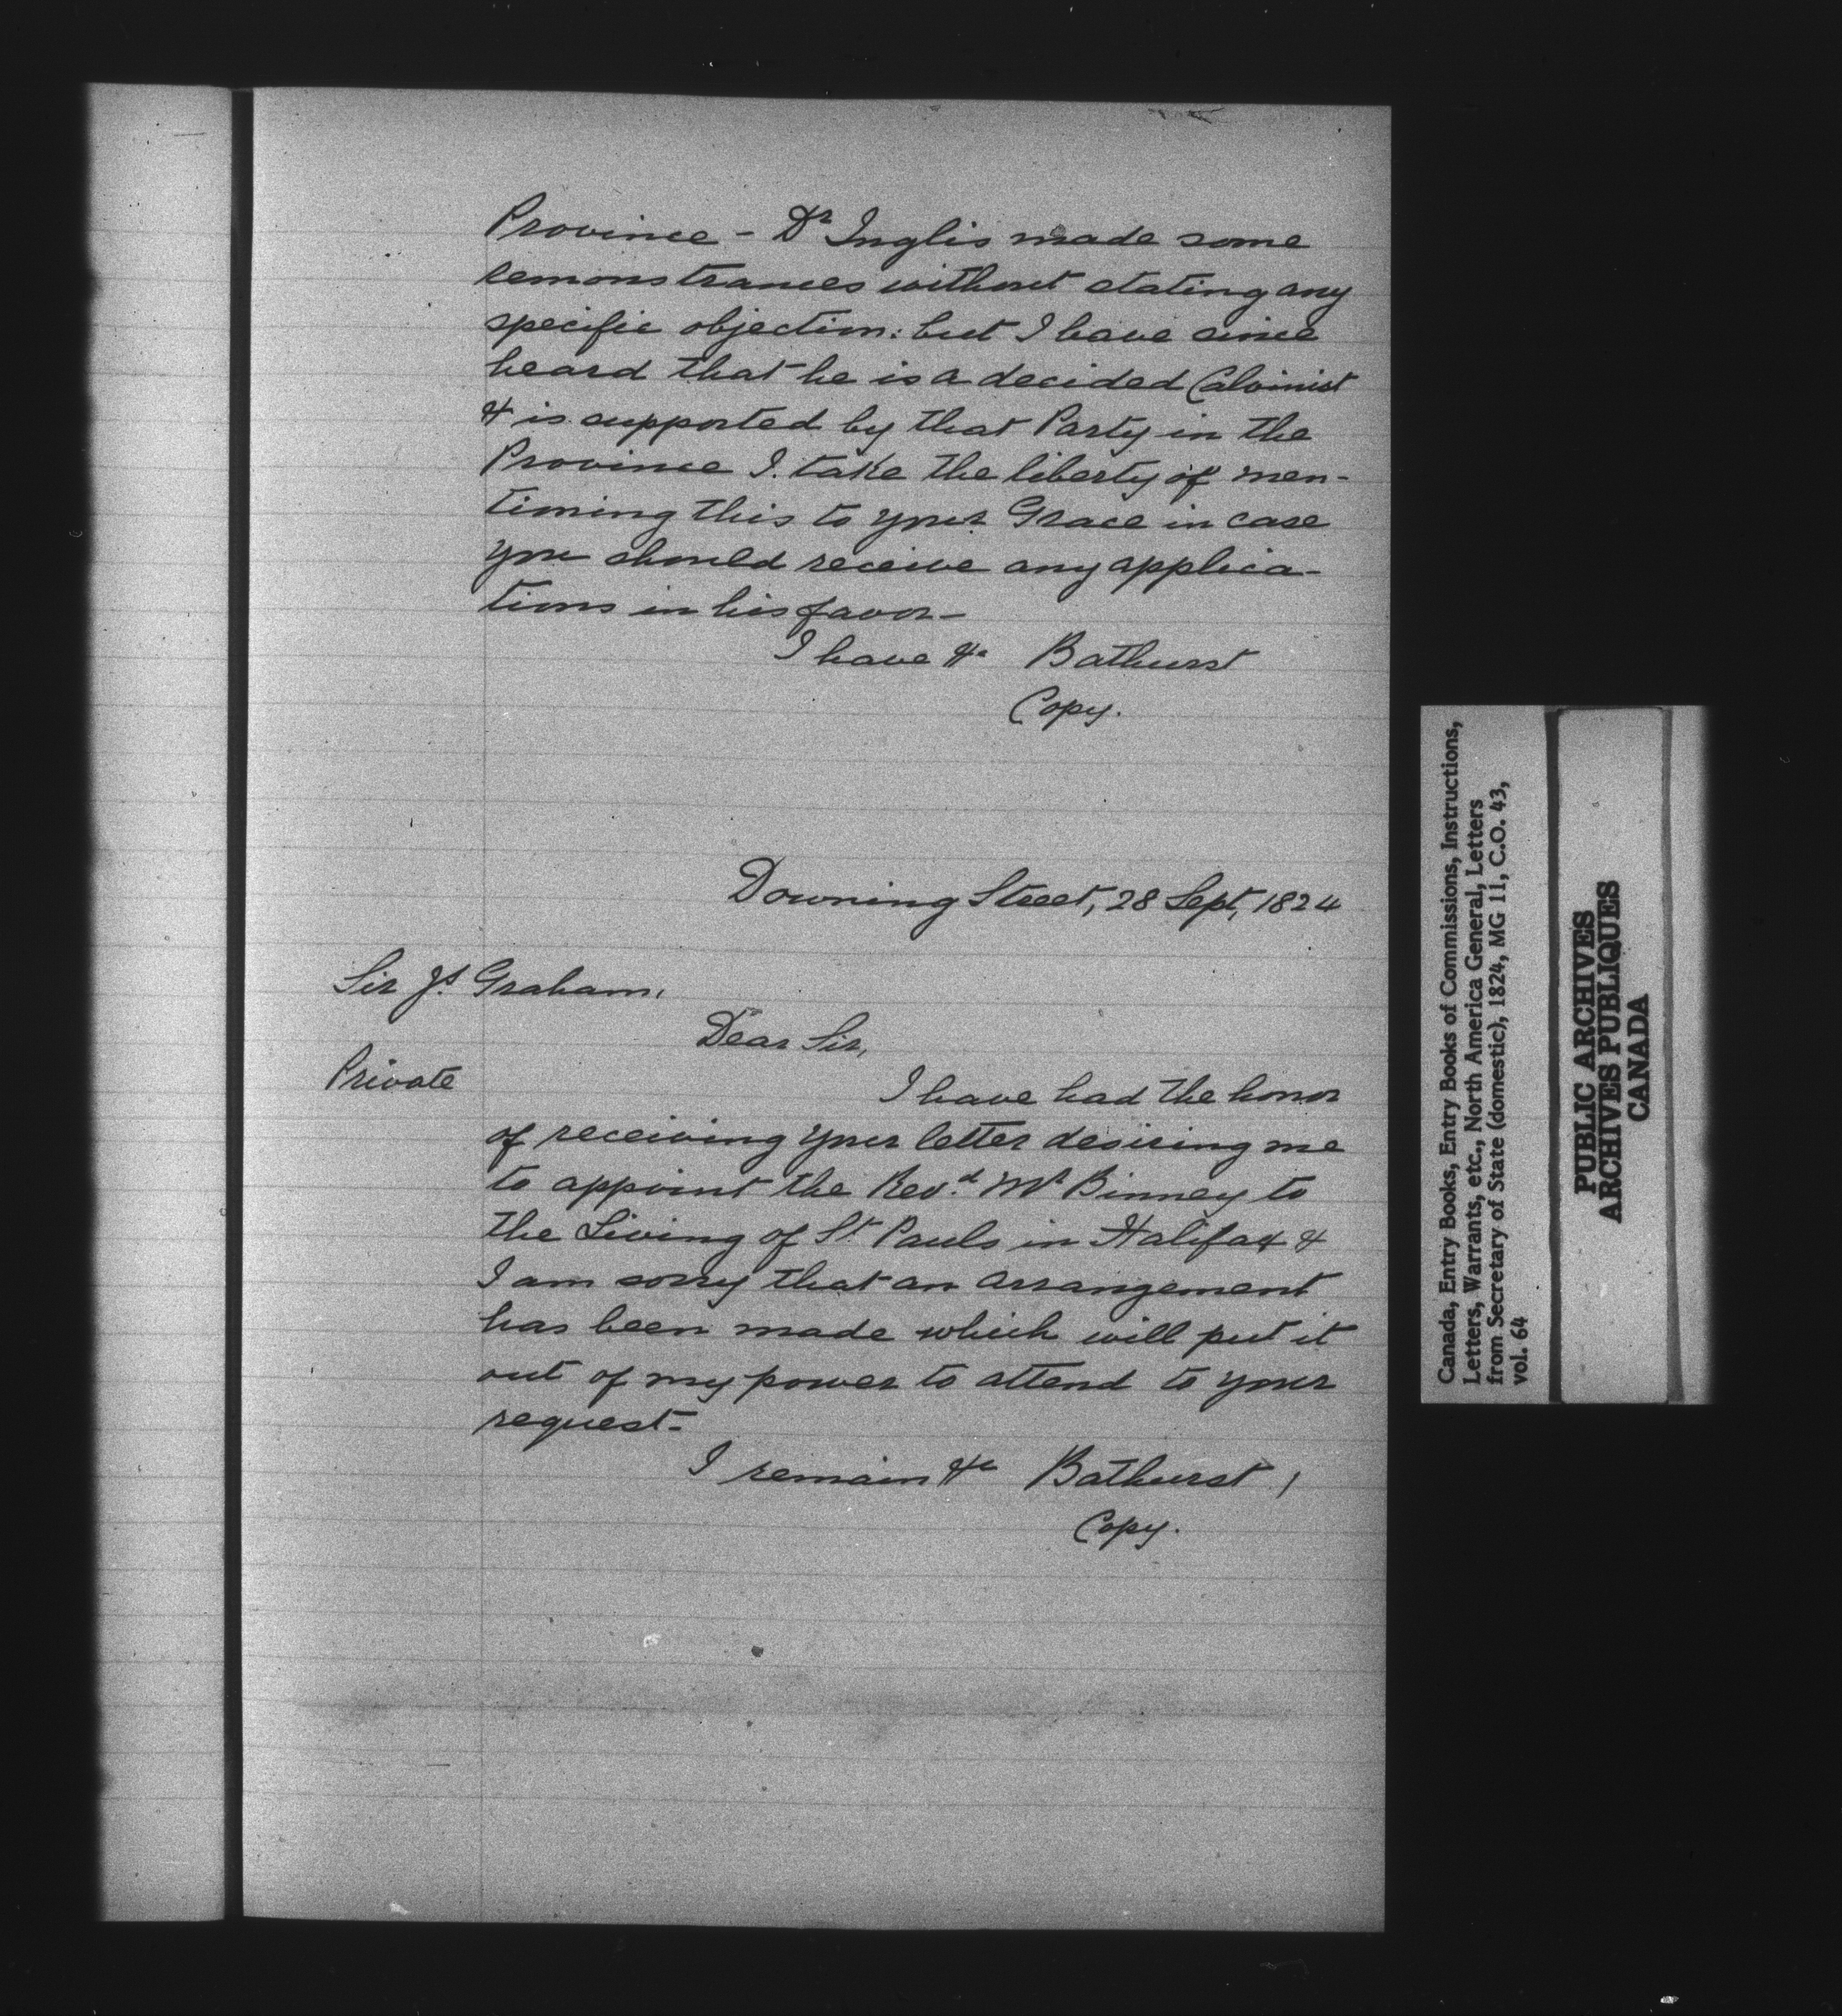 Province - Dr Inglis made some
remonstrances without stating any
specific objection: but I have since
heard that he is a decided Calvinist
& is supported by that Party in the
Province I take the liberty of men-
tioning this to your Grace in case
you should receive any applica-
tions in his favor-
I have &c Bathurst
Copy.
Downing Street, 28 Sept, 1824
Sir Js. Graham.
Dear Sir,
Private
I have had the honor
of receiving your letter desiring me
to appoint the Revd. Mr Binney to
the Living of St. Pauls in Halifax &
I am sorry that an arrangement
has been made which will put it
out of my power to attend to your
request-
I remain &c Bathurst
Copy.
Canada, Entry Books, Entry Books of Commissions, Instructions,
Letters, Warrants, etc., North America General, Letters
from Secretary of State (domestic), 1824, MG 11, C.O. 43,
vol. 64
PUBLIC ARCHIVES
ARCHIVES PUBLIQUES
CANADA